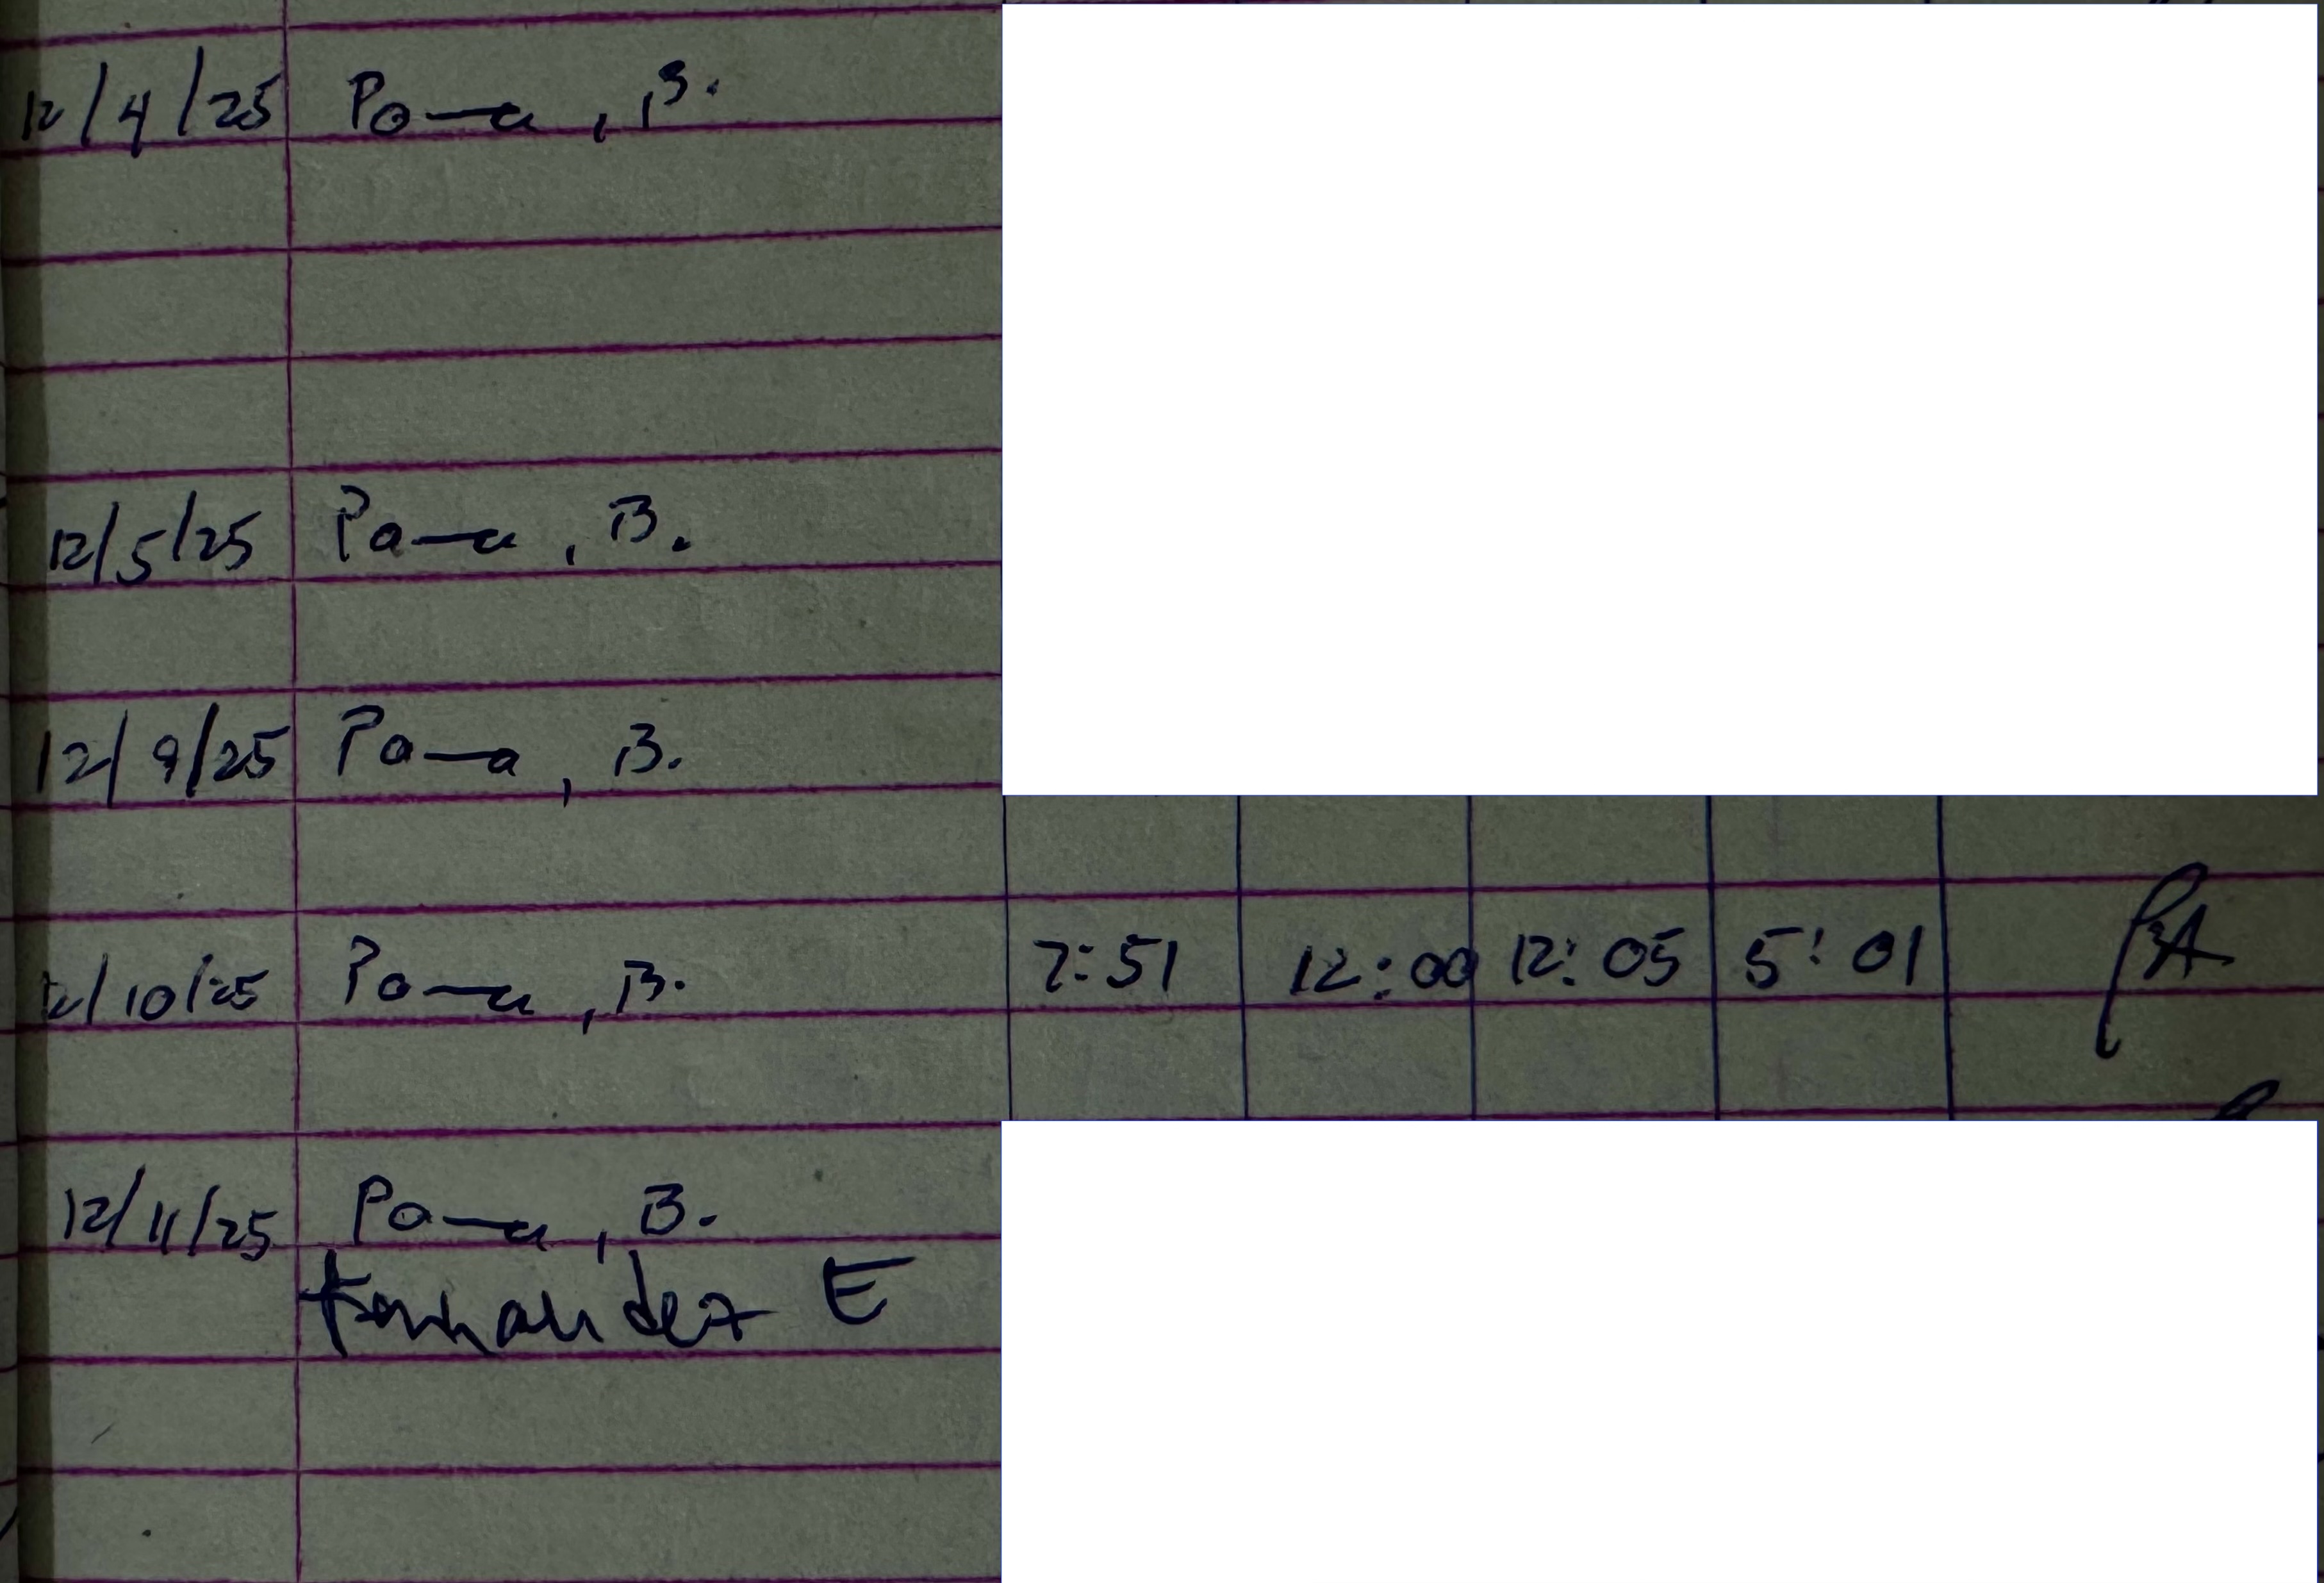 12/4/25 Po—a, B.
12/5/25 Pa—a, B.
12/9/25 Pa—a, B.
12/10/25 Pa—a, B. 7:51 12:00 12:05 5:01
12/11/25 Pa—a, B.
Fernandez E